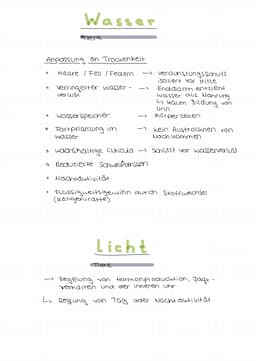 Wasser
Tiere
Anpassung an Trockenheit
• Haare / Fell / Federn → Verdunstungsschutz
isoliert vor Hitze
• verringerter Wasser- → Enddarm entzieht
verlust Wasser aus Nahrung
↳ kaum Bildung von
Urin
• Wasserspeicher → Körperzellen
• Fortpflanzung im → kein Austrocknen von
Wasser Nachkommen
• wachshaltige Cuticula → Schützt vor Wasserverlust
• Reduzierte Schweißdrüsen
• Nachtaktivität
• Flüssigkeitsgewinn durch Stoffwechsel
(Kängeruratte)
Licht
Tiere
→ Regelung von Hormonproduktion, Jagd-
verhalten und der inneren Uhr
↳ Regung von Tag oder Nachtaktivität